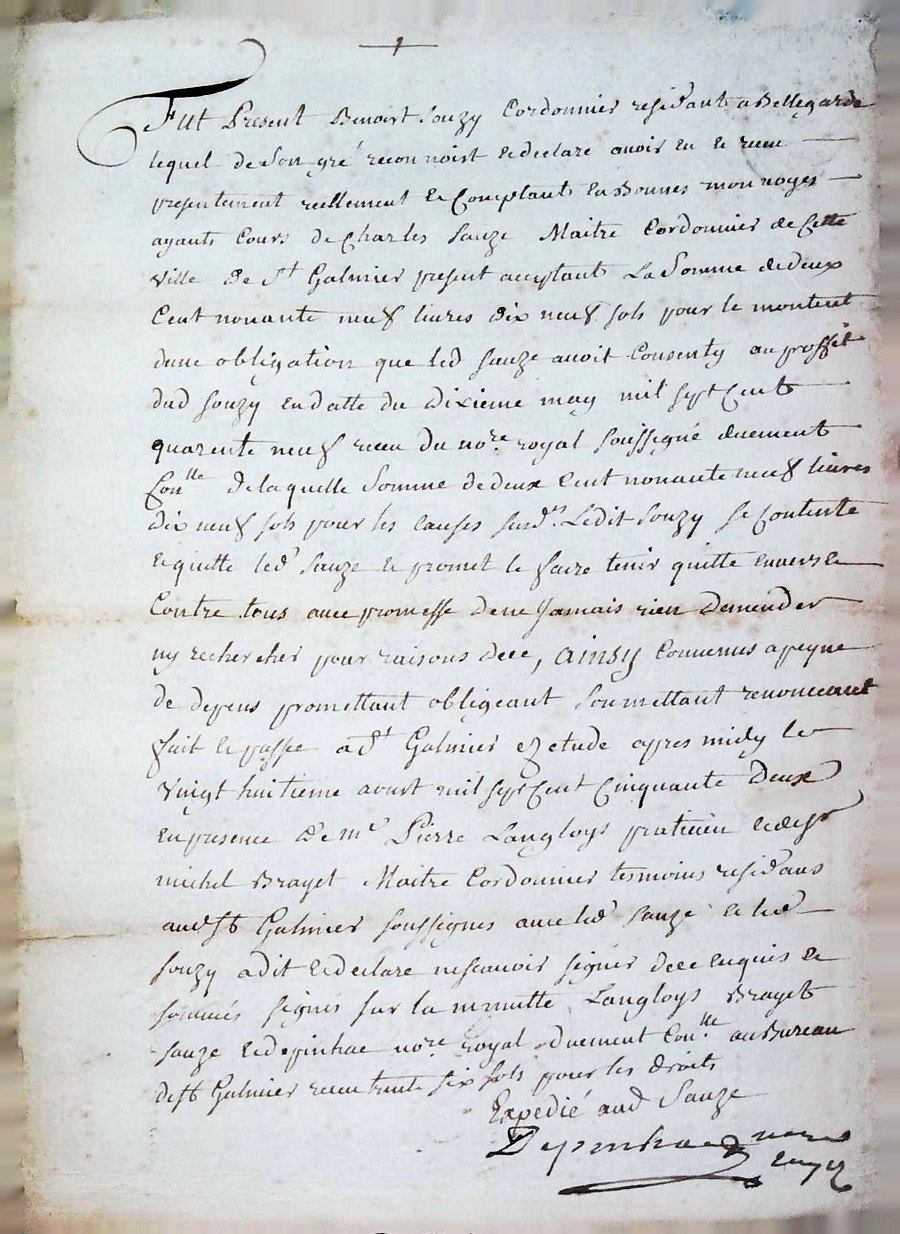 Fut Present Benoist Souzy Cordonnier residant a Bellegarde
lequel de Son gré reconnoist et declare avoir eu et receu
presentement reellement et Comptant En Bonnes monnoyes
ayants Cours de Charles Sauze Maitre Cordonnier de Cette
Ville de St Galmier present acceptant La Somme de deux
Cent nonante neuf livres dix neuf sols pour le montent
dune obligation que led Sauze avoit Consenty au proffit
dud Souzy en datte du dixieme may mil sept Cent
quarente neuf receu du nore royal soussigné duement
Conlle de laquelle Somme de deux Cent nonante neuf livres
dix neuf sols pour les causes susdes Ledit Souzy se Contente
et quitte led Sauze et promet le faire tenir quitte envers et
Contre tous avec promesse de ne Jamais rien Demender
ny rechercher pour raisons dece, ainsy Convenus a peyne
de depens promettant obligeant Soumettant renonceant
fait et passé a St Galmier ez etude apres midy le
vingt huitieme avust mil sept Cent Cinquante Deux
En presence de me Pierre Langloys praticien et de sr
michel Brayet Maitre Cordonnier tesmoins residans
aud St Galmier soussignes avec led Sauze et led
Souzy a dit et declaré ne scavoir signer dece enquis et
sommés signés sur la minutte Langloys Brayet
Sauze et depinhac nore royal duement Conlle au Bureau
de St Galmier receu trente six sols pour les droits
Expedié aud Sauze
Depinhac nore